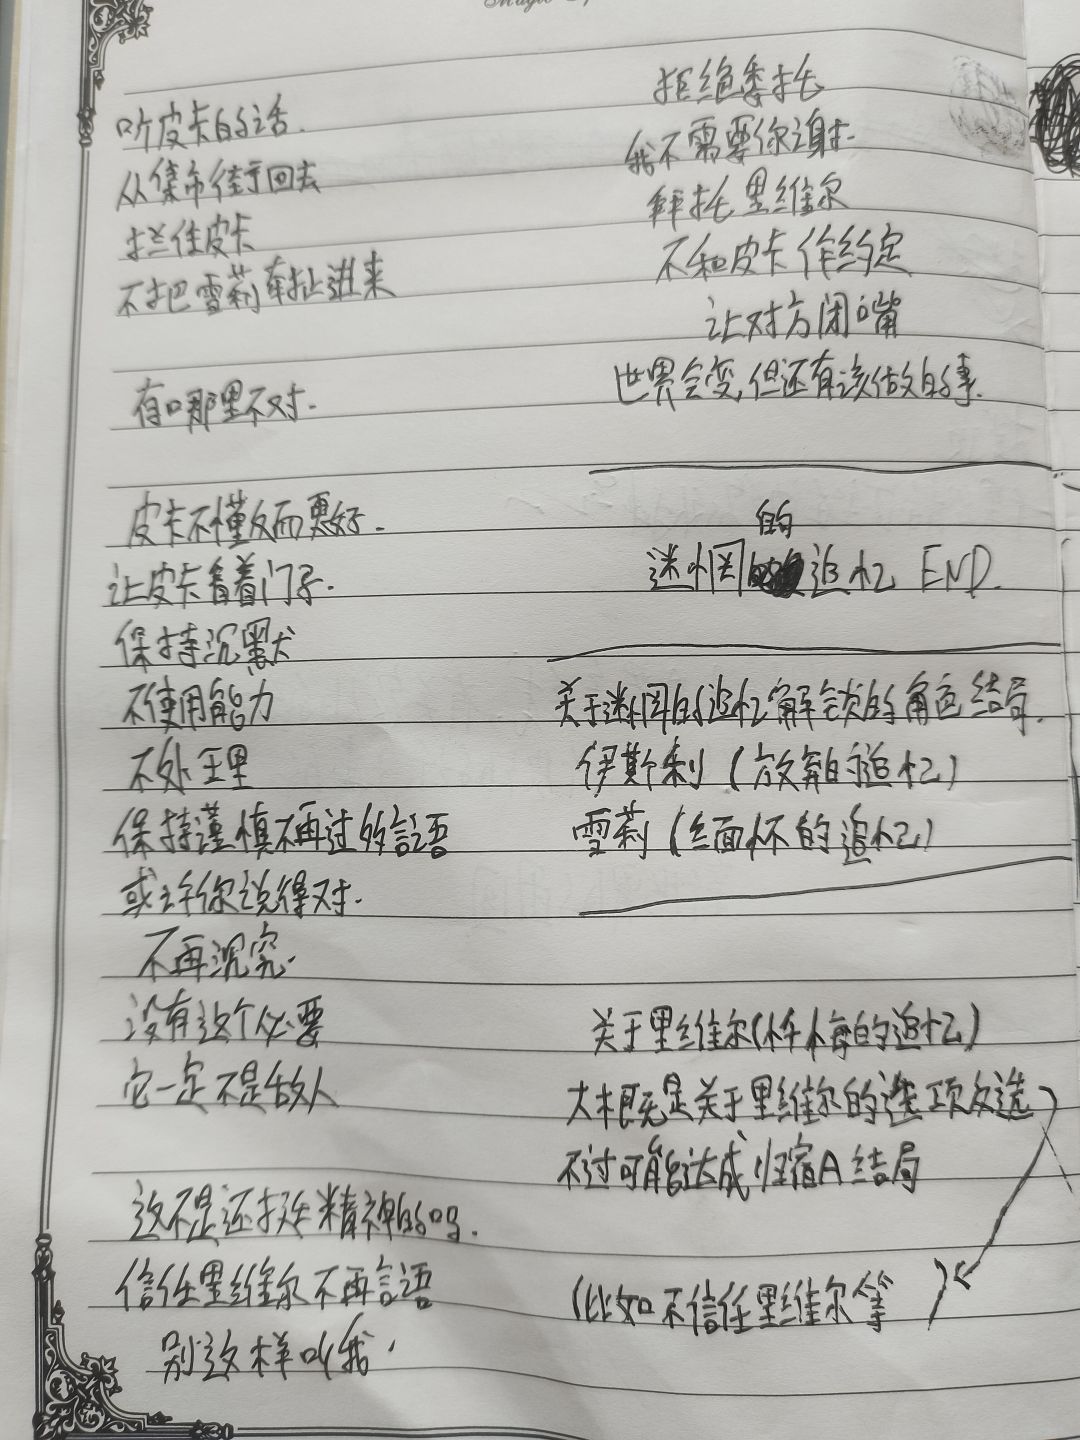 听皮卡的话.
从集市街回去
拦住皮卡
不把雪莉牵扯进来
有哪里不对.
皮卡不懂反而更好.
让皮卡看着门了.
保持沉默
不使用能力
不处理
保持谨慎不再过多言语
或许你说得对.
不再深究.
没有这个必要
它一定不是敌人
这不是还挺精神的吗.
信任里维尔不再言语
别这样叫我.
拒绝委托
我不需要你谢.
拜托里维尔
不和皮卡作约定
让对方闭嘴
世界会变,但还有该做的事.
的
迷惘追忆 END.
关于迷惘的追忆解锁的角色结局.
伊斯利(放弃的追忆)
雪莉(缅怀的追忆)
关于里维尔(忏悔的追忆)
大概是关于里维尔的选项反选
不过可能达成归宿A结局
(比如不信任里维尔等)